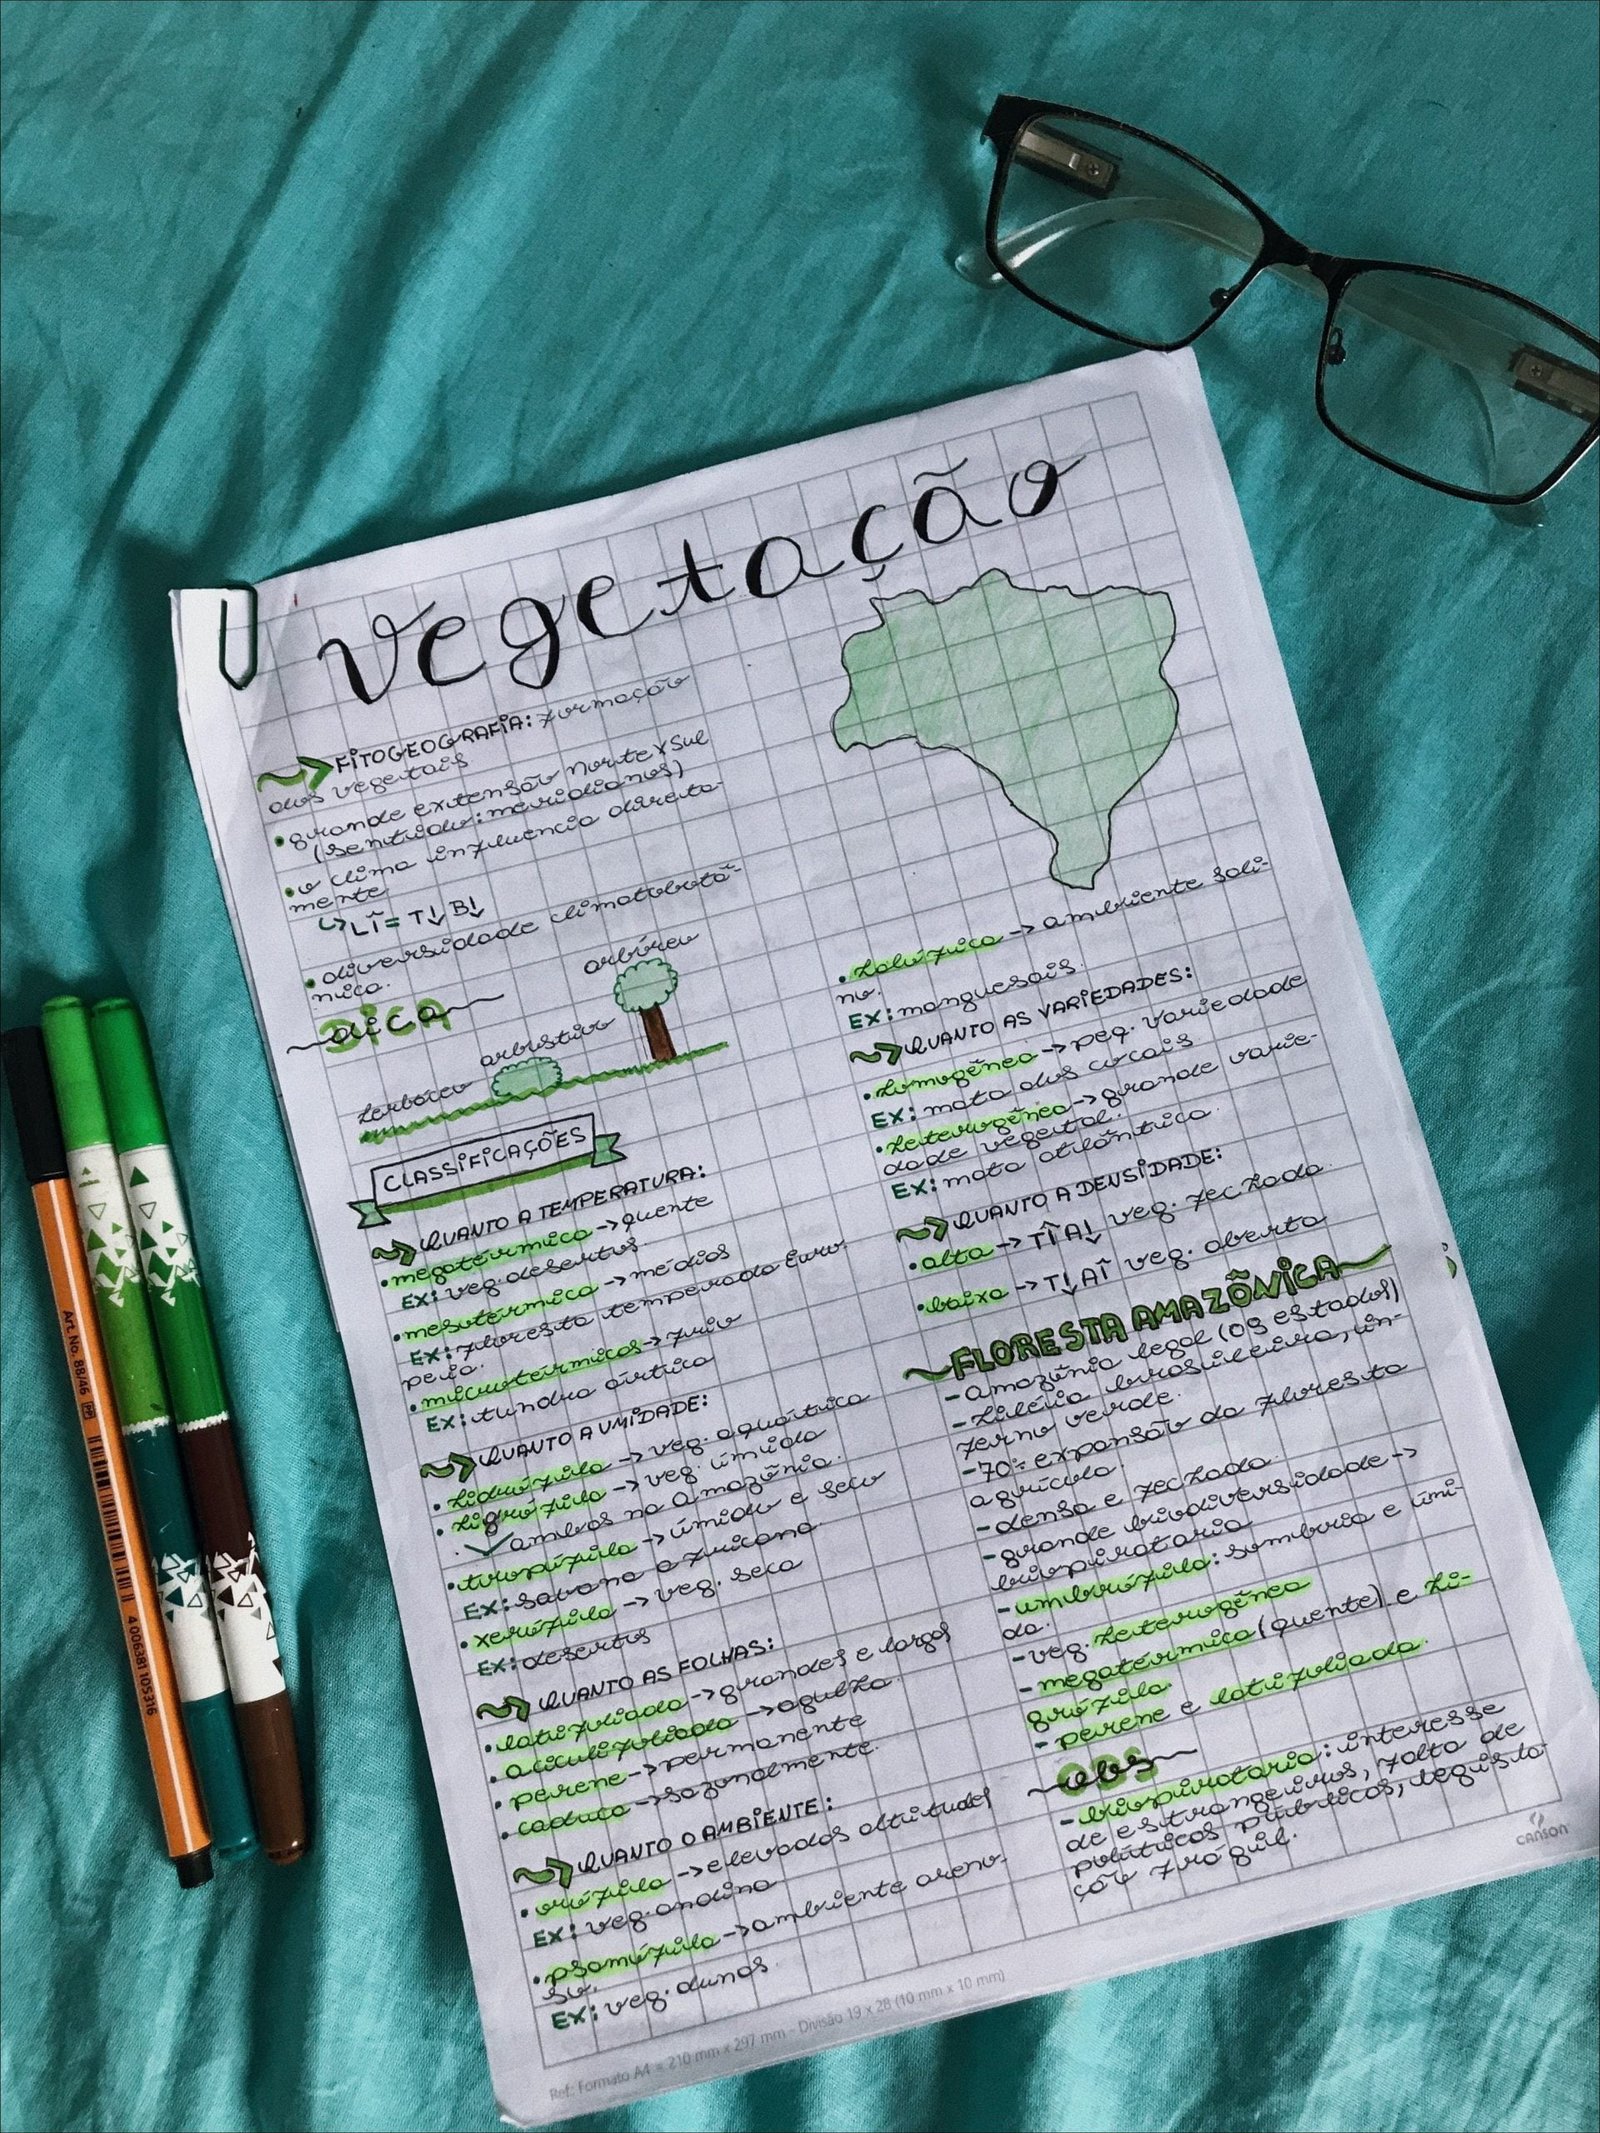 Vegetação
FITOGEOGRAFIA: formação
dos vegetais
• grande extensão norte x sul
(sentido: meridianos)
• o clima influencia direta-
mente
↳ L↑ = T↓ B↓
• diversidade climatobotâ-
nica.
DICA
dica
herbáceo arbustivo arbóreo
CLASSIFICAÇÕES
QUANTO A TEMPERATURA:
• megatérmica -> quente
EX: veg. desertos.
• mesotérmica -> médias
EX: floresta temperada Euro-
peia.
• microtérmicas -> frio
EX: tundra ártica
QUANTO A UMIDADE:
• hidrófila -> veg. aquática
• higrófila -> veg. úmida
ambos na Amazônia.
• tropófila -> úmido e seco
EX: savana africana.
• xerófila -> veg. seca
EX: desertos
QUANTO AS FOLHAS:
• latifoliada -> grandes e largas
• aciculifoliada -> agulha.
• perene -> permanente
• caduca -> sazonalmente.
QUANTO O AMBIENTE:
• orófila -> elevadas altitudes
EX: veg. andina
• psamófila -> ambiente areno-
so.
EX: veg. dunas.
• halófica -> ambiente sali-
no.
EX: manguesais.
QUANTO AS VARIEDADES:
• homogênea -> peq. variedade
EX: mata dos cocais
• heterogênea -> grande varie-
dade vegetal.
EX: mata atlântica.
QUANTO A DENSIDADE:
• alta -> T↑ A↓ veg. fechada.
• baixa -> T↓ A↑ veg. aberta
FLORESTA AMAZÔNICA
- amazônia legal (09 estados)
- hiléia brasileira, in-
ferno verde.
- 70% expansão da floresta
agrícola.
- densa e fechada.
- grande biodiversidade ->
biopirataria
- umbrófila: sombria e úmi-
da.
- veg. heterogênea
- megatérmica (quente) e hi-
grófila.
- perene e latifoliada.
OBS
obs
- biopirataria: interesse
de estrangeiros, falta de
políticas públicas, legisla-
ção frágil.
CANSON
Ref: Formato A4 = 210 mm x 297 mm - Divisão 19 x 28 (10 mm x 10 mm)
Art. No. 88/46
4 006381 105316